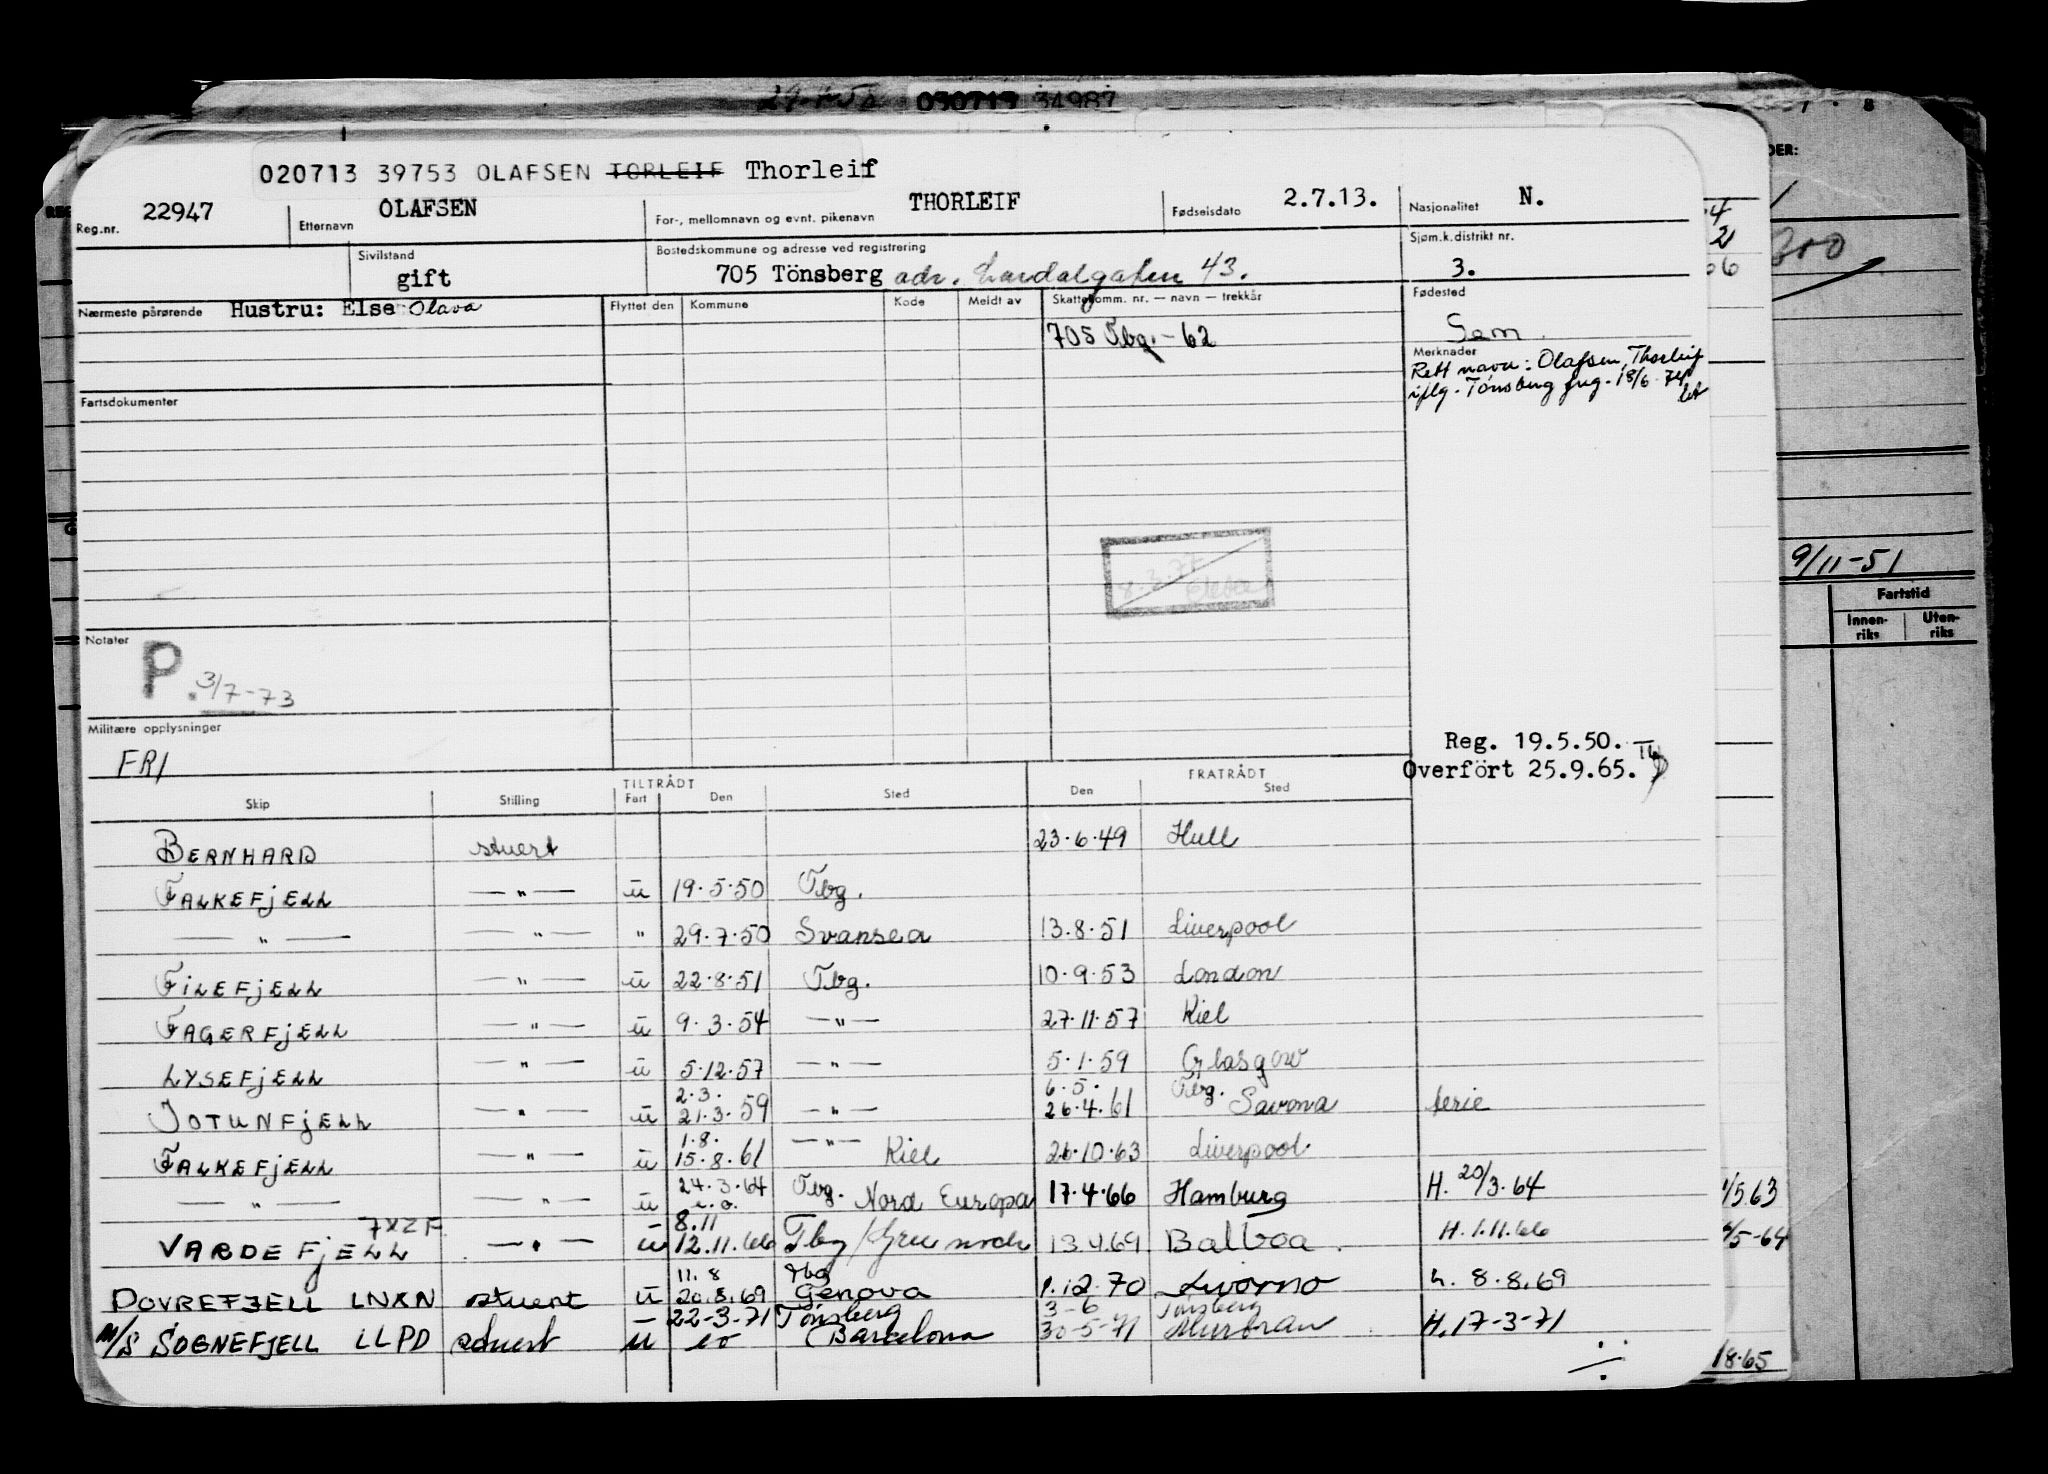 29-1-58 030713 34987
020713 39753 OLAFSEN TORLEIF Thorleif
Reg.nr. 22947 Etternavn OLAFSEN For-, mellomnavn og evnt. pikenavn THORLEIF Fødselsdato 2.7.13. Nasjonalitet N.
Sivilstand gift Bostedskommune og adresse ved registrering 705 Tönsberg adr. 43. Sjøm.k.distrikt nr. 3.
Nærmeste pårørende Hustru: Else Olava Flyttet den Kommune Kode Meldt av Skattekomm. nr. — navn — trekkår Fødested
705 Tbg. - 62 Sem.
Merknader
Rett navn: Olafsen, Thorleif
iflg. Tönsberg fvg. 18/6-74
Fartsdokumenter
8.3.77
Notater
P. 3/7-73
Militære opplysninger
FRI
Reg. 19.5.50.
Overfört 25.9.65.
TILTRÅDT FRATRÅDT
Skip Stilling Fart Den Sted Den Sted
BERNHARD stuert 23.6.49 Hull
FALKEFJELL —"— u 19.5.50 Tbg.
—"— —"— " 29.7.50 Svansea 13.8.51 Liverpool
FILEFJELL —"— u 22.8.51 Tbg. 10.9.53 London
FAGERFJELL —"— u 9.3.54 —"— 27.11.57 Kiel
LYSEFJELL —"— u 5.12.57 —"— 5.1.59 Glasgow
2.3. 6.5. Tbg.
JOTUNFJELL —"— u 21.3.59 —"— 26.4.61 Savona ferie
1.8. —"—
FALKEFJELL —"— u 15.8.61 Kiel 26.10.63 Liverpool
24.3.64 Tbg.
—"— —"— u e.o. Nord Europa 17.4.66 Hamburg H. 20/3.64
7XZF 8.11
VARDEFJELL —"— u 12.11.66 Tbg/Greenock 13.4.69 Balboa. H.1.11.66
11.8 Tbg
DOVREFJELL LNXN stuert u 20.8.69 Genova 1.12.70 Livorno h. 8.8.69
22-3-71 Tönsberg 3-6 Tönsberg
M/S SOGNEFJELL LLPD stuert u eo (Barcelona 30-5-71 H.17-3-71
9/11-51
Fartstid
Innen-riks Uten-riks
5.63
5-64
18.65